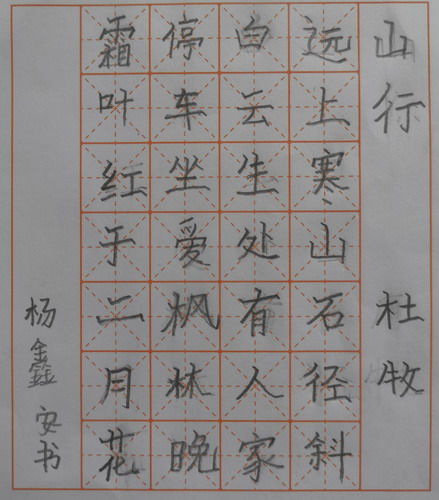 山行 杜牧
远上寒山石径斜
白云生处有人家
停车坐爱枫林晚
霜叶红于二月花
杨鑫安书